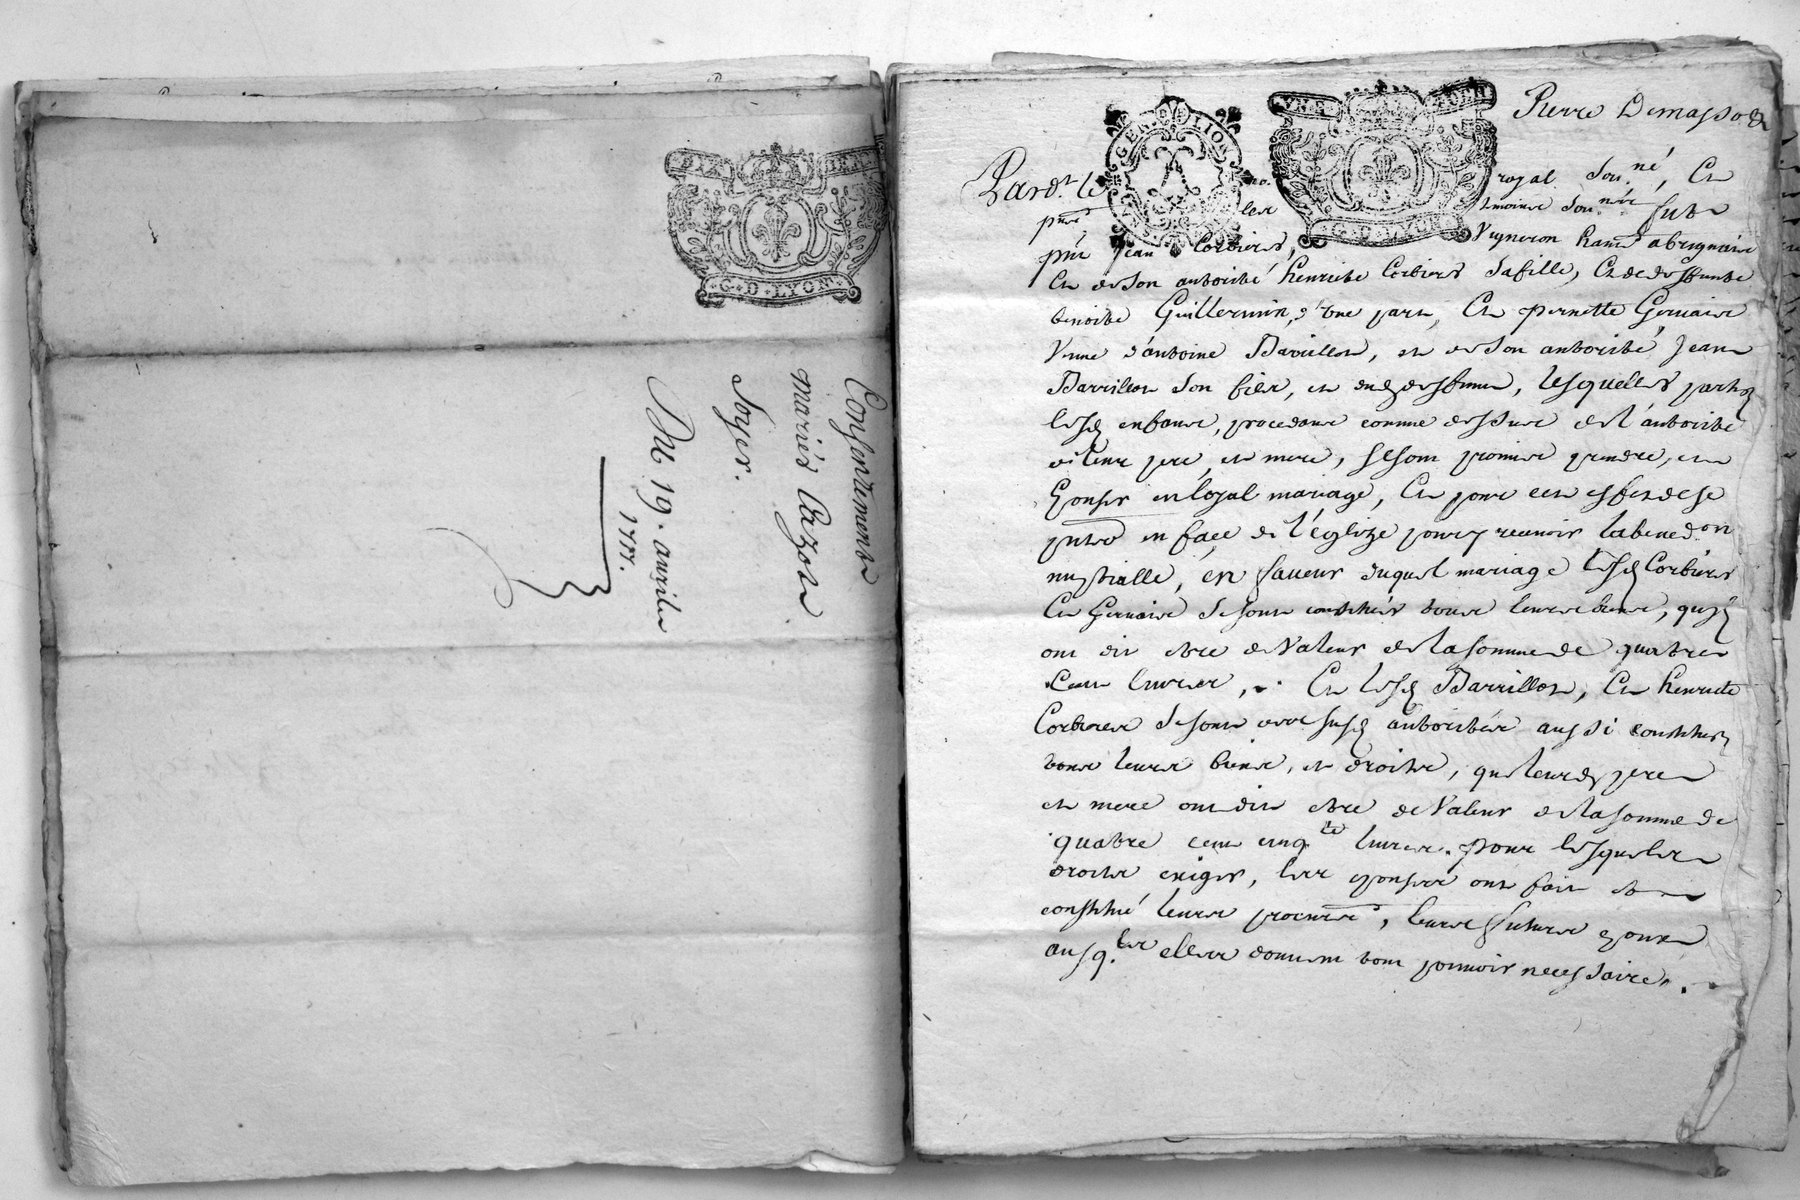 G·D·LYON
Consentement
mariés
Du 19. avril
GEN. DE LION
G·D·LYON
Pierre Demasso
Pard.t le no. royal sou.né, Et
pñts les temoins sou.nés fut
pñt Jean Corbiere, Vigneron hañt a brignais
Et de son authorité henriete Corbiere sa fille, Et de deffunte
benoite Guillermin, d'vne part, Et pernette Gervaise
Veuue d'antoine Barrillon, et de son authorité Jean
Barrillon son fils, et dud deffunt, lesquelles parties
lesd enfans, procedans comme dessus de l'authorité
de leur pere, et mere, se sont promis prendre, et
Epouser en loyal mariage, Et pour cet effet de se
pñter en face de l'eglize pour y recevoir la bened.on
nuptialle, en faveur duquel mariage lesd Corbiere
Et Gervaise se sont constitués tous leurs biens, quils
ont dit etre de Valeur de la somme de quatre
Cent livres, Et lesd Barrillon, Et henriete
Corbiere se sont aussi constitués
tous leurs biens, et droits, que leurd pere
et mere ont dit etre de Valeur de la somme de
quatre cent cinq.te livres. pour lesquels
droits exiger, les epouses ont fait et
constitué leurs procureurs, leurs futurs epoux
ausq.ls elles donnent tout pouvoir necessaire.